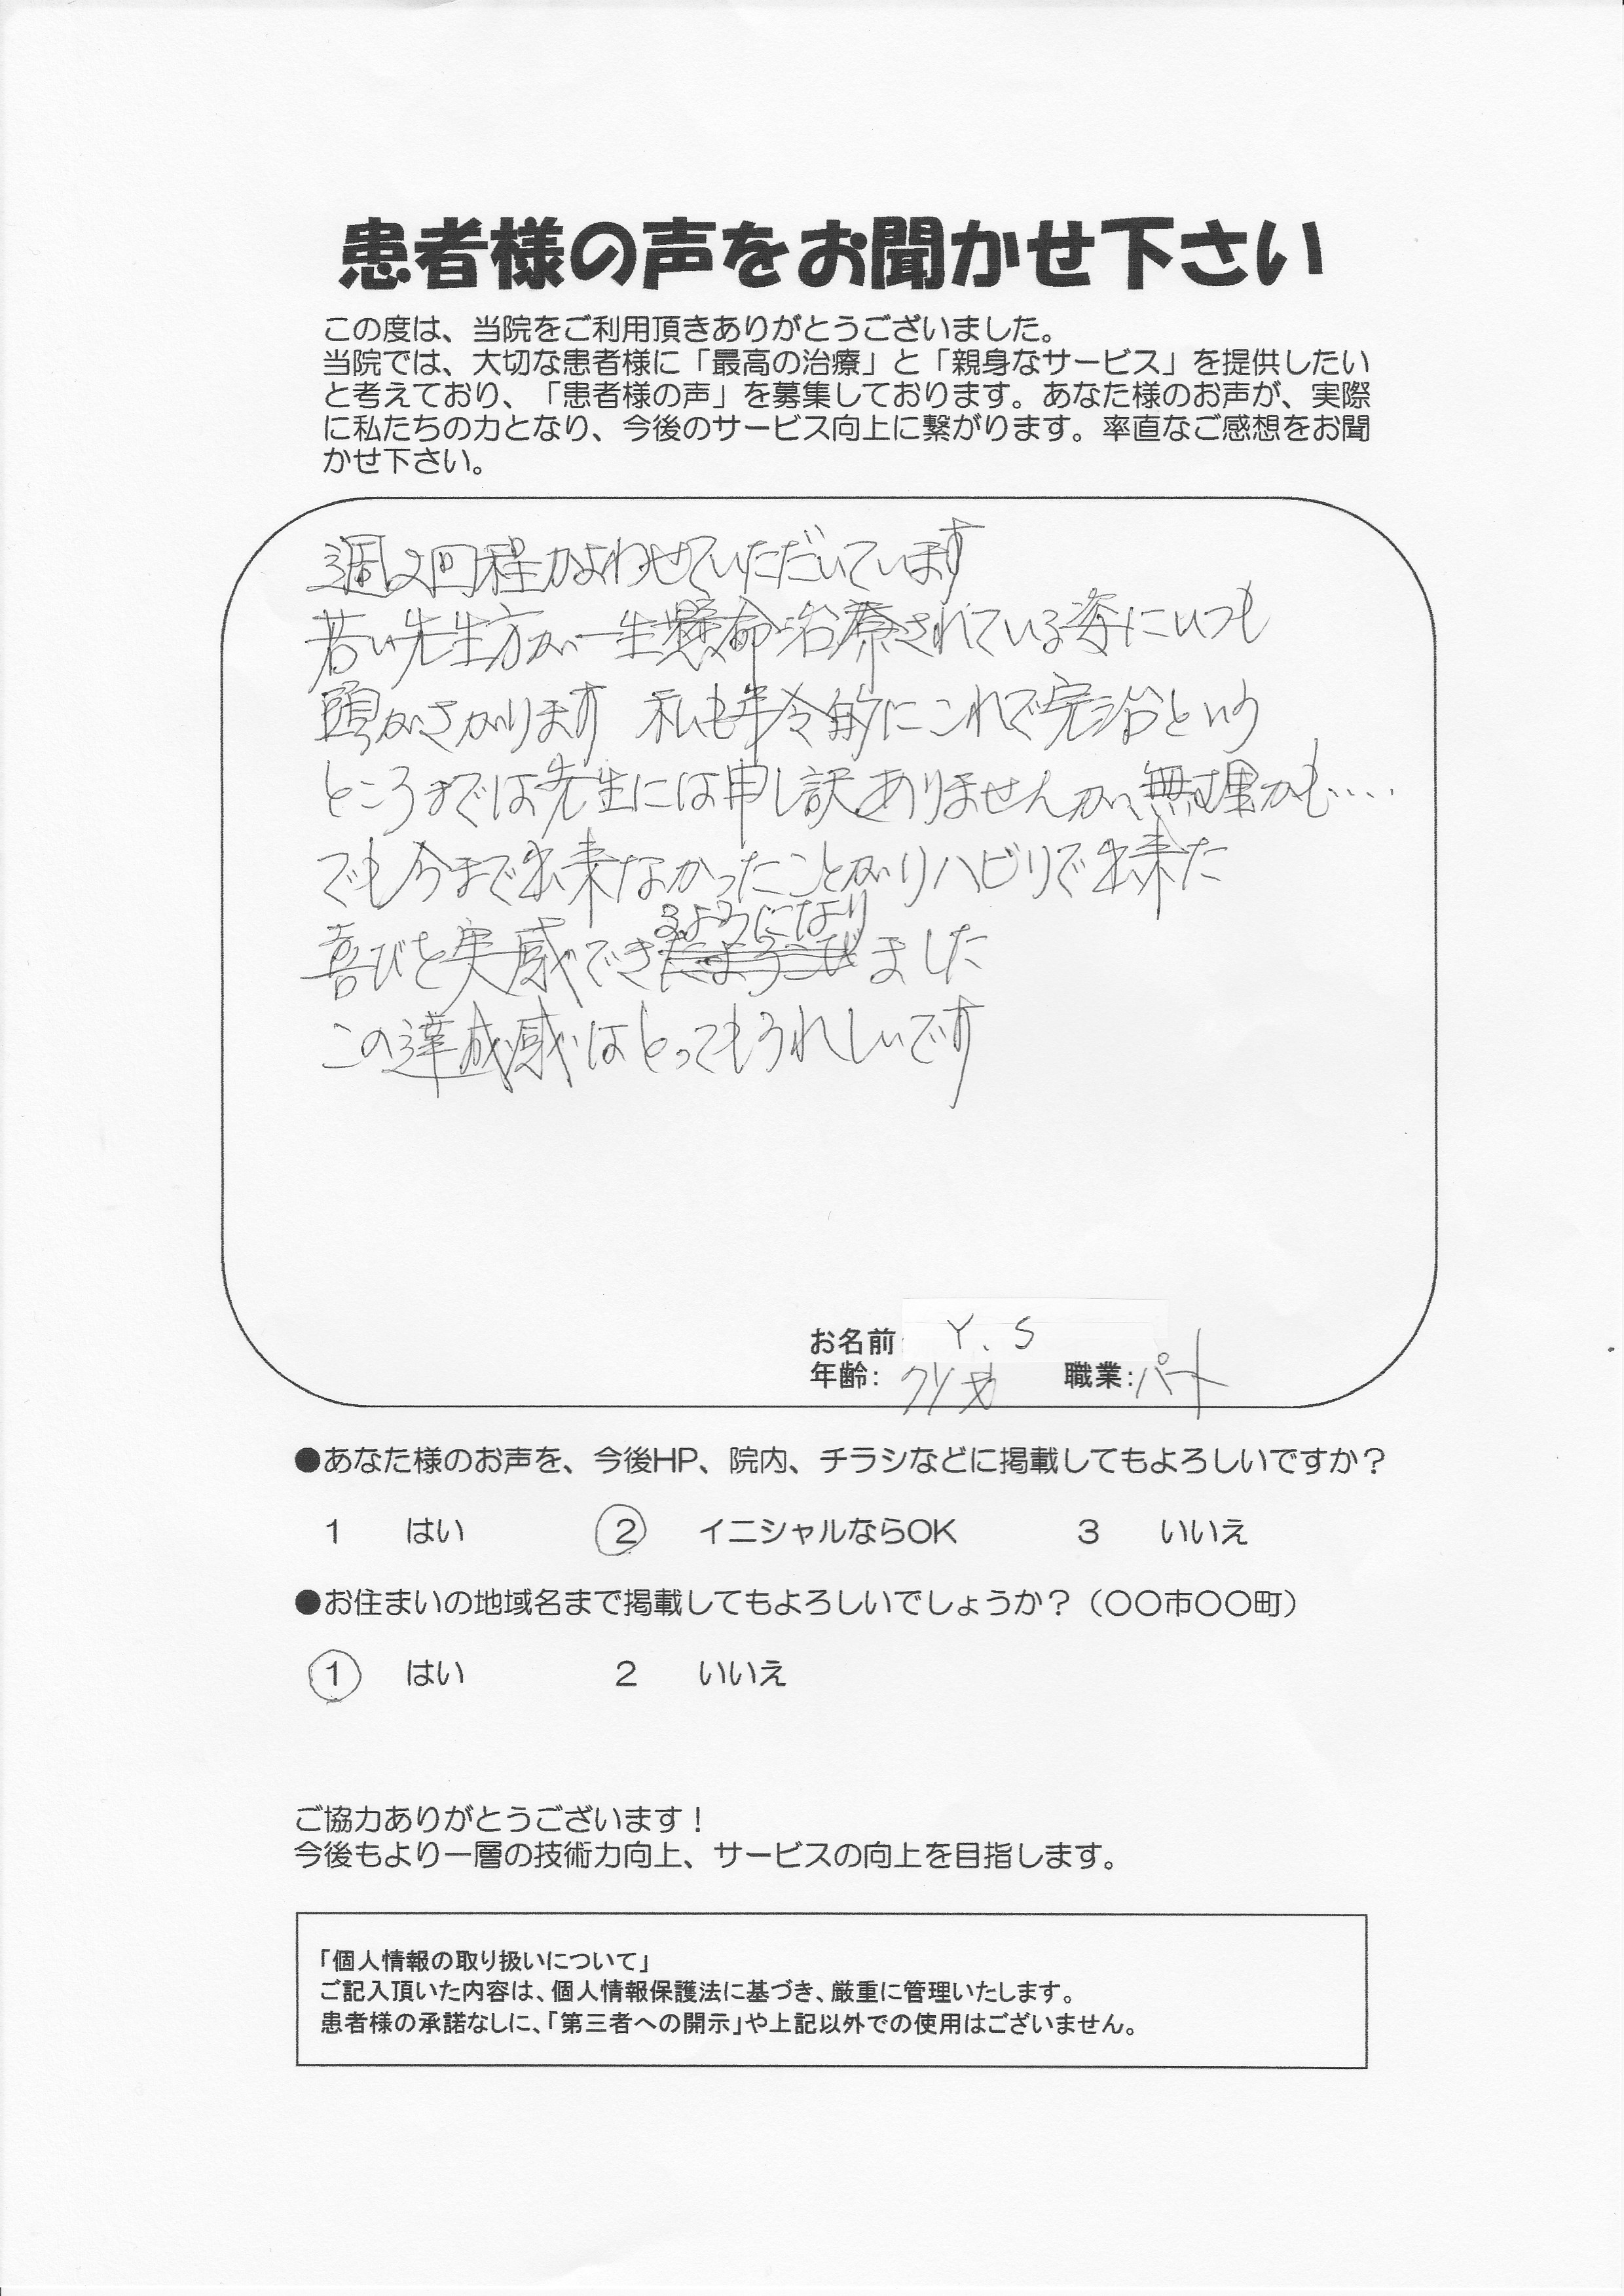 患者様の声をお聞かせ下さい
この度は、当院をご利用頂きありがとうございました。
当院では、大切な患者様に「最高の治療」と「親身なサービス」を提供したい
と考えており、「患者様の声」を募集しております。あなた様のお声が、実際
に私たちの力となり、今後のサービス向上に繋がります。率直なご感想をお聞
かせ下さい。
週2回程かよわせていただいています
若い先生方が一生懸命治療されている姿にいつも
頭がさがります 私も年令的にこれで完治という
ところまでは先生には申し訳ありませんが、無理かも....
でも今まで出来なかったことがリハビリで出来た
るようになり
喜びを実感できたようこびました
この達成感はとってもうれしいです
お名前: Y.S
年齢: 才 職業:パート
●あなた様のお声を、今後HP、院内、チラシなどに掲載してもよろしいですか?
1 はい 2 イニシャルならOK 3 いいえ
●お住まいの地域名まで掲載してもよろしいでしょうか?(〇〇市〇〇町)
1 はい 2 いいえ
ご協力ありがとうございます!
今後もより一層の技術力向上、サービスの向上を目指します。
「個人情報の取り扱いについて」
ご記入頂いた内容は、個人情報保護法に基づき、厳重に管理いたします。
患者様の承諾なしに、「第三者への開示」や上記以外での使用はございません。